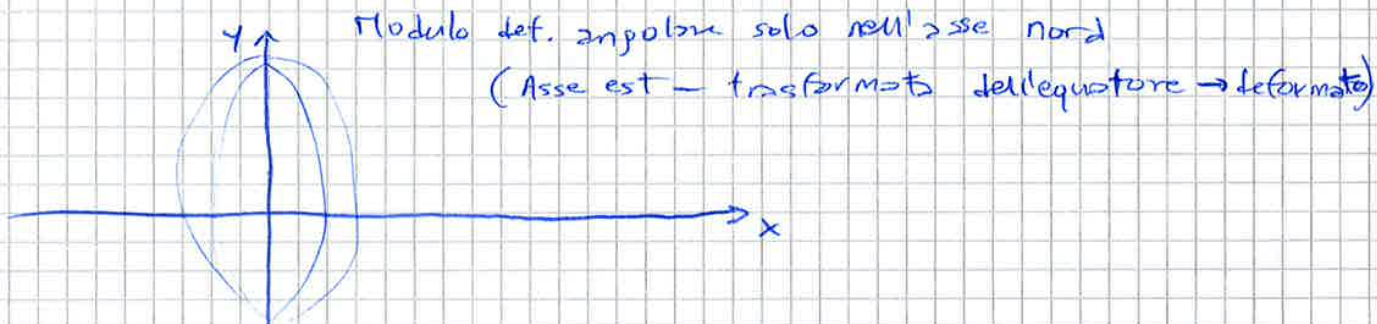 Modulo def. angolare solo nell'asse nord
(Asse est – trasformata dell'equatore → deformato)
Y
X